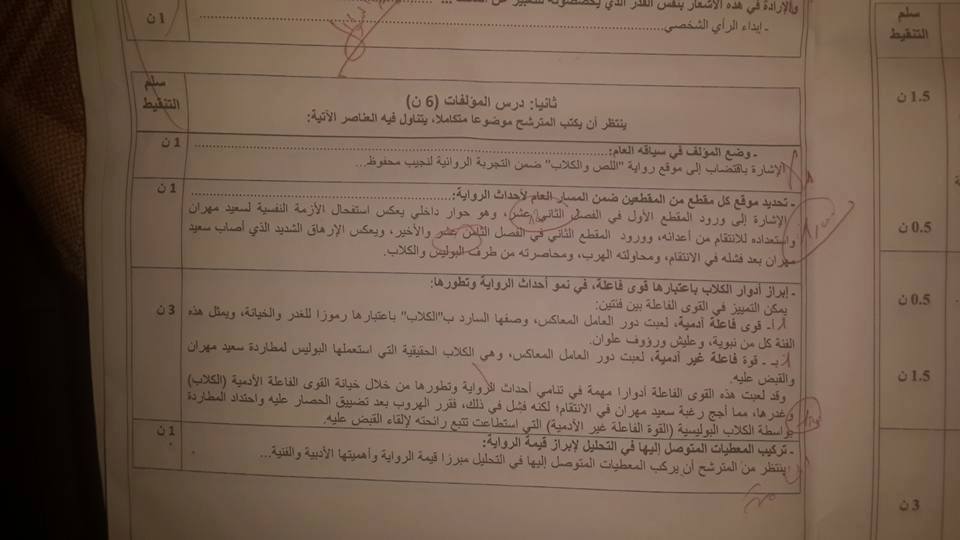 والإرادة في هذه الأشعار بنفس القدر الذي يخصصونه للتعبير عن
- إبداء الرأي الشخصي........
1 ن
سلم التنقيط
ثانيا: درس المؤلفات (6 ن)
ينتظر أن يكتب المترشح موضوعا متكاملا، يتناول فيه العناصر الآتية:
- وضع المؤلف في سياقه العام:........
1 ن
الإشارة باقتضاب إلى موقع رواية "اللص والكلاب" ضمن التجربة الروائية لنجيب محفوظ...
- تحديد موقع كل مقطع من المقطعين ضمن المسار العام لأحداث الرواية:........
1 ن
الإشارة إلى ورود المقطع الأول في الفصل الثاني عشر، وهو حوار داخلي يعكس استفحال الأزمة النفسية لسعيد مهران
واستعداده للانتقام من أعدائه، وورود المقطع الثاني في الفصل الثامن عشر والأخير، ويعكس الإرهاق الشديد الذي أصاب سعيد
مهران بعد فشله في الانتقام، ومحاولته الهرب، ومحاصرته من طرف البوليس والكلاب.
- إبراز أدوار الكلاب باعتبارها قوى فاعلة، في نمو أحداث الرواية وتطورها:
يمكن التمييز في القوى الفاعلة بين فئتين:
أ- قوى فاعلة آدمية، لعبت دور العامل المعاكس، وصفها السارد ب"الكلاب" باعتبارها رموزا للغدر والخيانة، ويمثل هذه
3 ن
الفئة كل من نبوية، وعليش ورؤوف علوان.
بـ - قوة فاعلة غير آدمية، لعبت دور العامل المعاكس، وهي الكلاب الحقيقية التي استعملها البوليس لمطاردة سعيد مهران
والقبض عليه.
وقد لعبت هذه القوى الفاعلة أدوارا مهمة في تنامي أحداث الرواية وتطورها من خلال خيانة القوى الفاعلة الآدمية (الكلاب)
وغدرها، مما أجج رغبة سعيد مهران في الانتقام؛ لكنه فشل في ذلك، فقرر الهروب بعد تضييق الحصار عليه واحتداد المطاردة
بواسطة الكلاب البوليسية (القوة الفاعلة غير الآدمية) التي استطاعت تتبع رائحته لإلقاء القبض عليه.
- تركيب المعطيات المتوصل إليها في التحليل لإبراز قيمة الرواية:
1 ن
ينتظر من المترشح أن يركب المعطيات المتوصل إليها في التحليل مبرزا قيمة الرواية وأهميتها الأدبية والفنية...
سلم التنقيط
1.5 ن
0.5 ن
0.5 ن
1.5 ن
3 ن